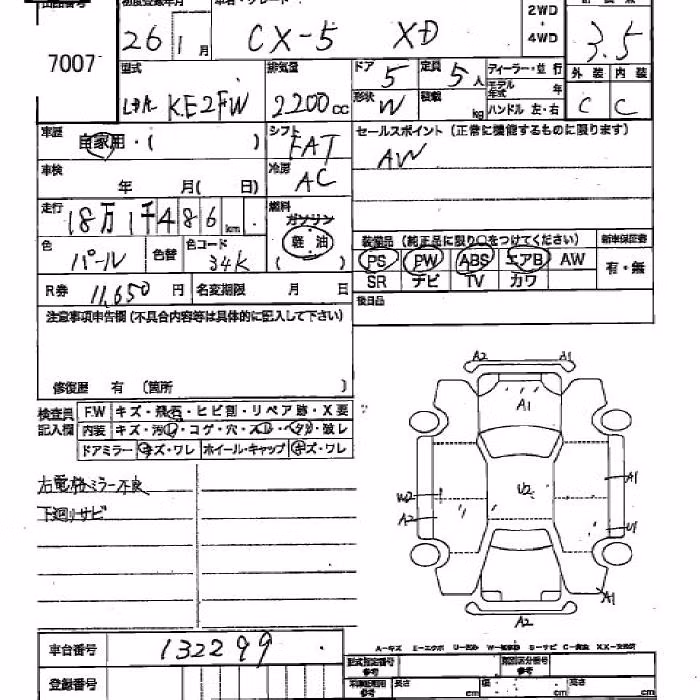 出品番号 初度登録年月 車名・グレード 2WD・4WD
7007 26 1月 CX-5 XD 3.5
型式 排気量 ドア 5 定員 5人 ディーラー・並行 外装 内装
KE2FW 2200cc 形状 W 積載 kg モデル年式 年 C C
ハンドル 左・右
車歴 自家用・( ) シフト FAT セールスポイント(正常に機能するものに限ります)
AW
車検 年 月( 日) 冷房 AC
走行 18万1千486km 燃料 ガソリン
軽油
( )
色 パール 色替 色コード 34K
装備品(純正品に限り○をつけてください) 新車保証書
PS PW ABS エアB AW 有・無
SR ナビ TV カワ
R券 11,650円 名変期限 月 日 後日品
注意事項申告欄(不具合内容等は具体的に記入して下さい)
修復歴 有 (箇所 )
検査員記入欄 F.W キズ・飛石・ヒビ割・リペア跡・X要
内装 キズ・汚レ・コゲ・穴・スレ・ヘタリ・破レ
ドアミラー キズ・ワレ ホイール・キャップ キズ・ワレ
左電格ミラー不良
下廻りサビ
A2 A1
A1
W2 U2 A1
A2 U1
A1
A2
A-キズ E-エクボ
車台番号 132299
登録番号
型式指定番号 参考 類別区分番号 参考
長さ cm 幅 cm 高さ cm